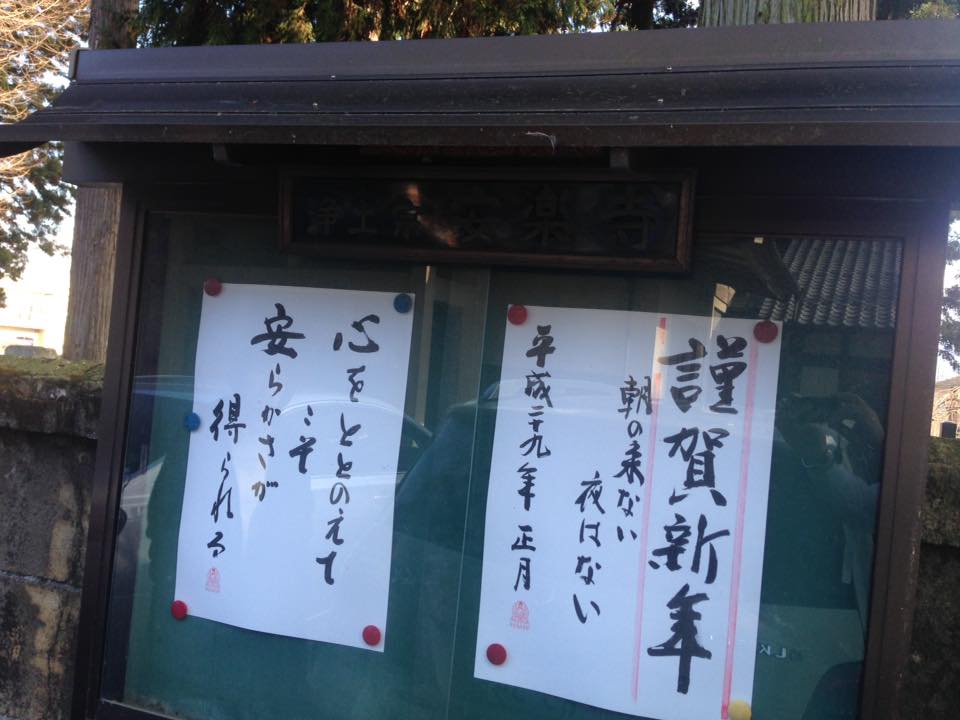 浄土宗 安楽寺
謹賀新年
朝の来ない
夜はない
平成二十九年 正月
心をととのえて
こそ
安らかさが
得られる